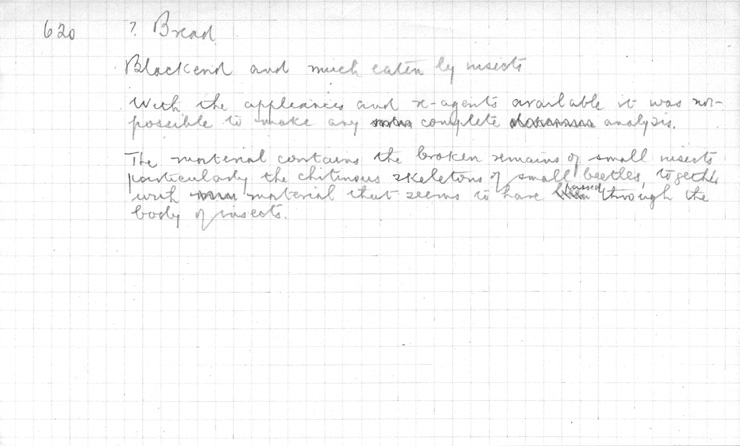 620 ? Bread
Blackend and much eaten by insects
With the appliances and re-agents available it was not
possible to make any complete analysis.
The material contains the broken remains of small insects
particularly the chitinous skeletons of small beetles, together
with material that seems to have passed through the
body of insects.